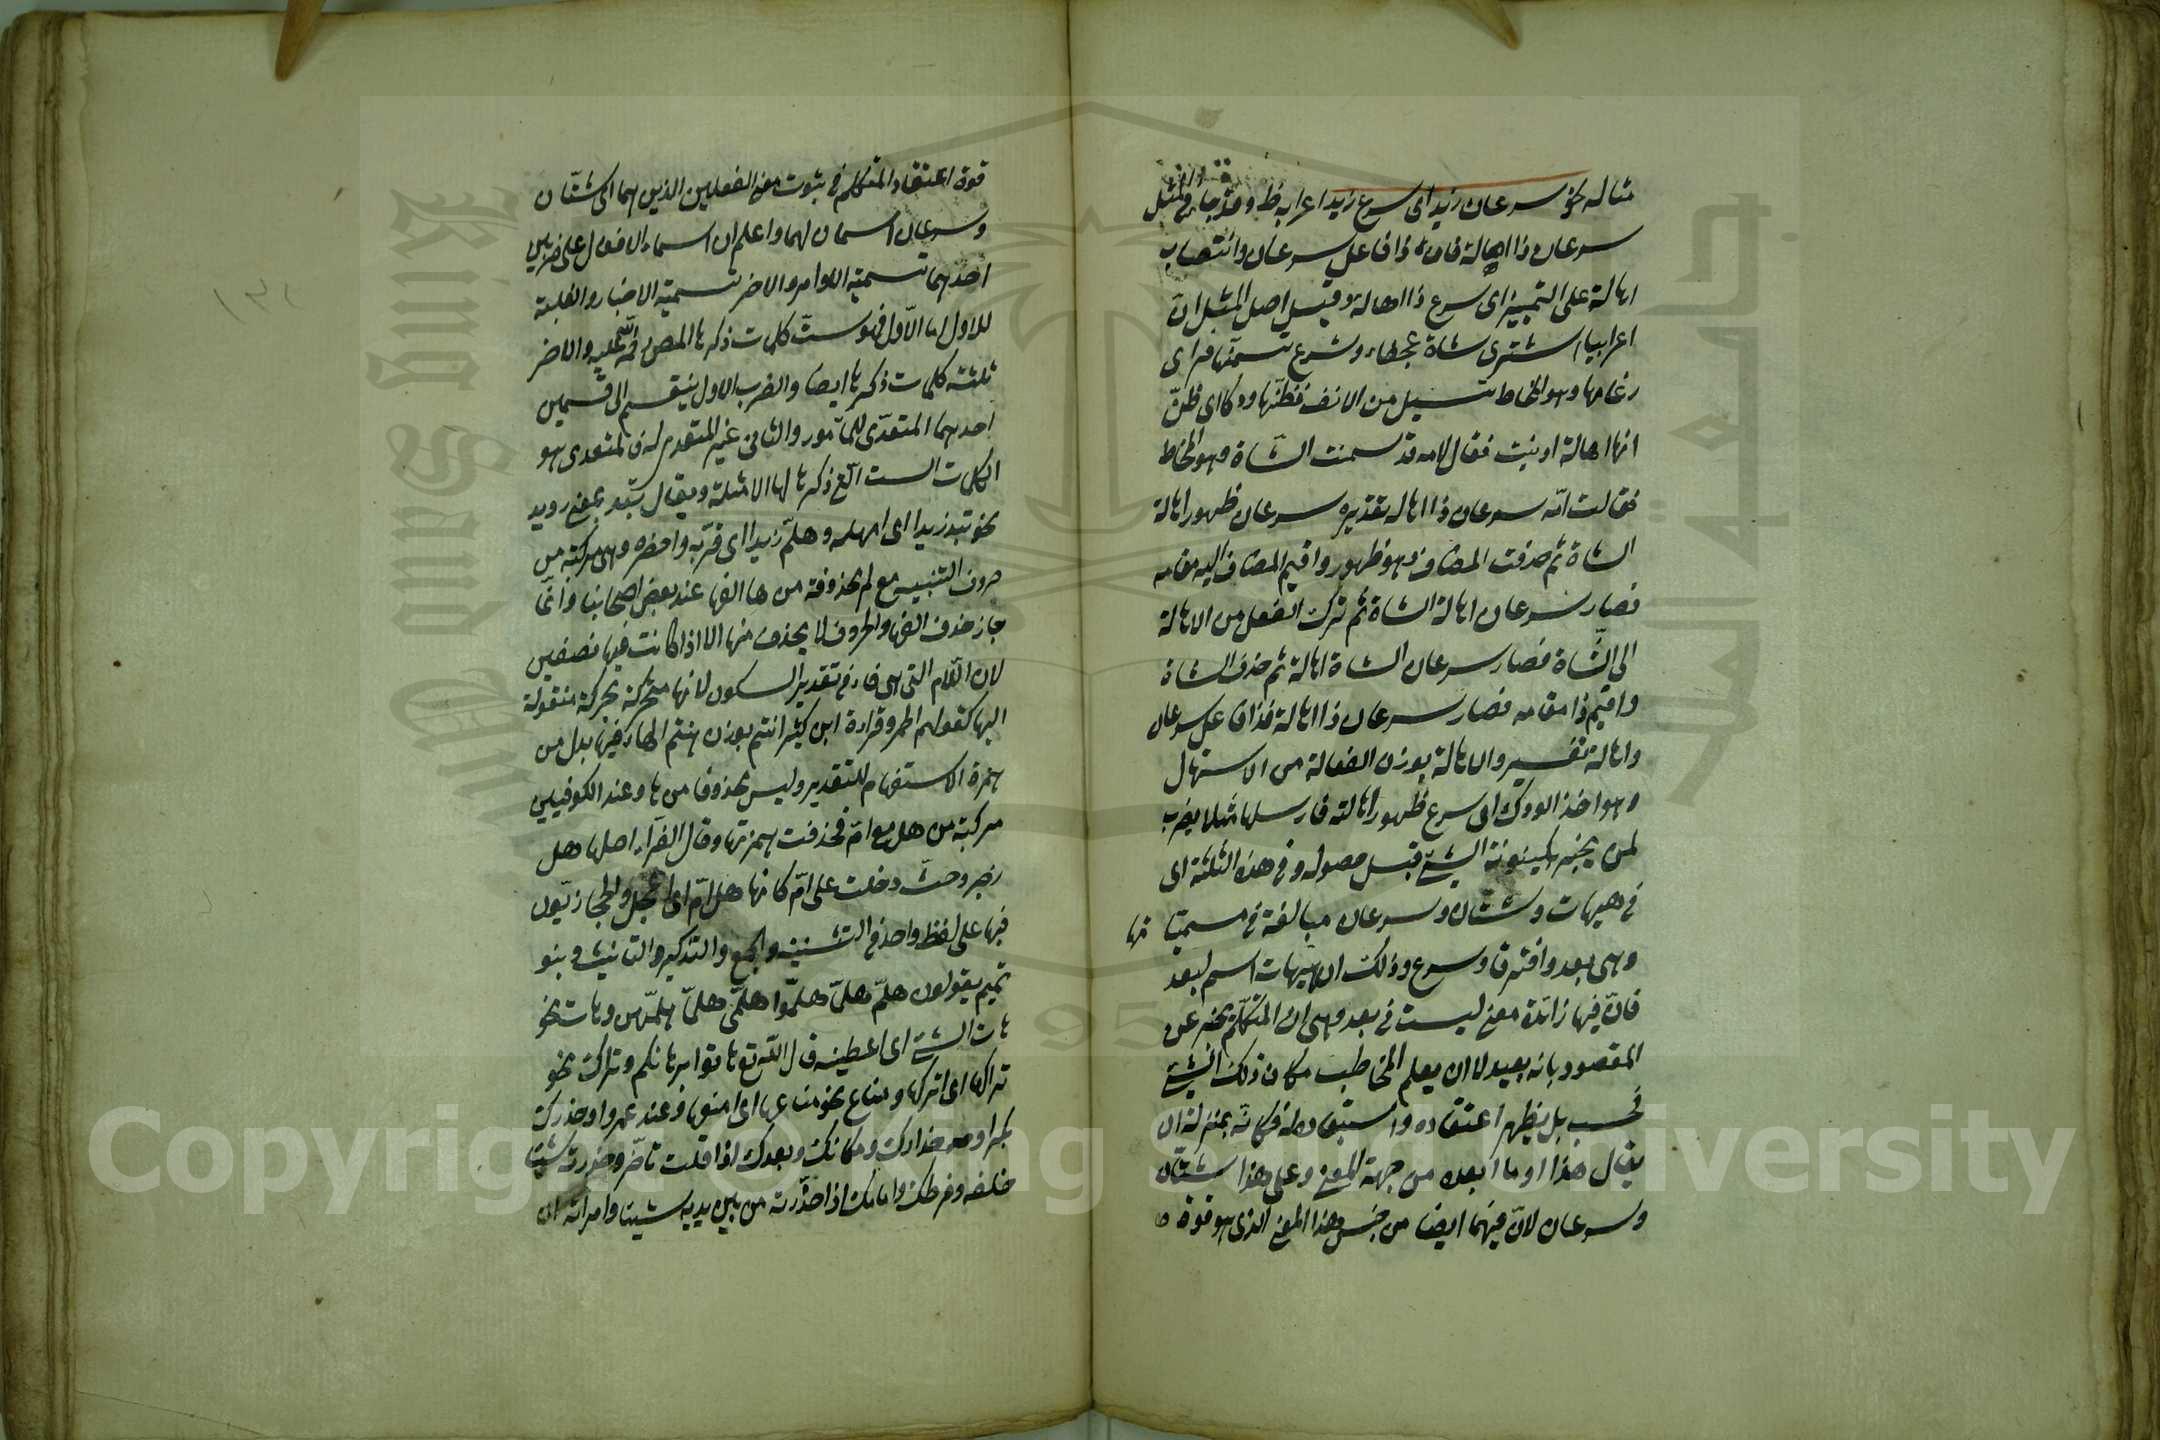 مثاله نحو سرعان زيد اى سرع زيد اعرابه ظ وقد جاء فى المثل
سرعان ذا اهالة فان ذا فاعل سرعان وانتصاب
اهالة على التمييز اى سرع ذا اهالة وقيل اصل المثل ان
اعرابيا اشترى شاة عجفاء وشرع تسمنها فراى
رغامها وهو المخاط تسيل من الانف فظنها ودكا اى ظن
انها اهالة او نيت فقال لامه قد سمنت الشاة وهو المخاط
فقالت امه سرعان ذا اهاله تقديره سرعان ظهور اهالة
الشاة ثم حذفت المضاف وهو ظهور واقيم المضاف اليه مقامه
فصار سرعان اهالة الشاة ثم ترك الفعل من الاهالة
الى الشاة فصار سرعان الشاة اهالة ثم حذف الشاة
واقيم ذا مقامه فصار سرعان ذا اهالة فذا فاعل سرعان
واهالة تفسير والاهالة بوزن الفعالة من الاستهال
وهو اخذ الودك اى سرع ظهور اهالته فارسلها مثلا يضرب
لمن يخبر بكينونة الشئ قبل حصوله وفى هذه الثلثة اى
فى هيهات وشتان وسرعان مبالغة فى مسميا تها
وهى بعد وافترق وسرع وذلك ان هيهات اسم لبعد
فان فيها زائدة معنى ليست فى بعد وهى ان المتكلم يخبر عن
المقصود بانه بعيد لا ان يعلم المخاطب مكان ذلك الشئ
فحسب بل يظهر اعتقاده واستبعاده فكانه بمنزلة ان
يقال هذا او ما ابعده من جهة المعنى وعلى هذا شتان
وسرعان لان فيهما ايضا من جنس هذا المعنى الذى هو قوة
قوة اعتقاد المتكلم فى ثبوت معنى الفعلين الذين هما اى شتان
وسرعان اسمان لهما واعلم ان اسماء الافعال على ضربين
احدهما تسمية الاوامر والاخر تسمية الاخبار والغلبة
للاول اما الاول فهو ست كلمات ذكرها المص رحمة الله عليه والاخر
ثلثة كلمات ذكرها ايضا والضرب الاول ينقسم الى قسمين
احدهما المتعدى للمأمور والثانى غير المتعدى له فالمتعدى هو
الكلمات الست التى ذكرها لها الامثلة ويقال تيد بمعنى رويد
نحو تيد زيدا اى امهله وهلم زيدا اى قربه واحضره وهى مركبة من
حروف التنبيه مع لم محذوفة من ها الفها عند بعض اصحابنا وانما
جاز حذف الفها والحروف لا يحذف منها الا اذا كانت فيها تضعيف
لان اللام التى هى فاء فى تقدير السكون لانها متحركة بحركة منقولة
اليها كقولهم الحمر وقراءة ابن كثير انتم بوزن هنتم الهاء فيها بدل من
همزة الاستفهام للتقدير وليس محذوفا من ها وعند الكوفيين
مركبة من هل مع ام فحذفت همزتها وقال الفراء اصلها هل
زجر وحث دخلت على ام كانها هل ام اى اعجل والحجازيون
فيها على لفظ واحد فى التثنية والجمع والتذكير والتانيث وبنو
تميم يقولون هلم هلما هلموا هلمى هلما هلممن وهات نحو
هات الشئ اى اعطينه قال الله تع هاتوا برهانكم وتراك نحو
تراكها اى اتركها ومناع نحو مناعها اى امنعها وعندك عمروا وحذرك
بكرا وحذارك ومكانك وبعدك اذا قلت تاخر وحذرته شيئا
خلفه وفرطك وامامك اذا حذرته من بين يديه شيئا وامرته ان